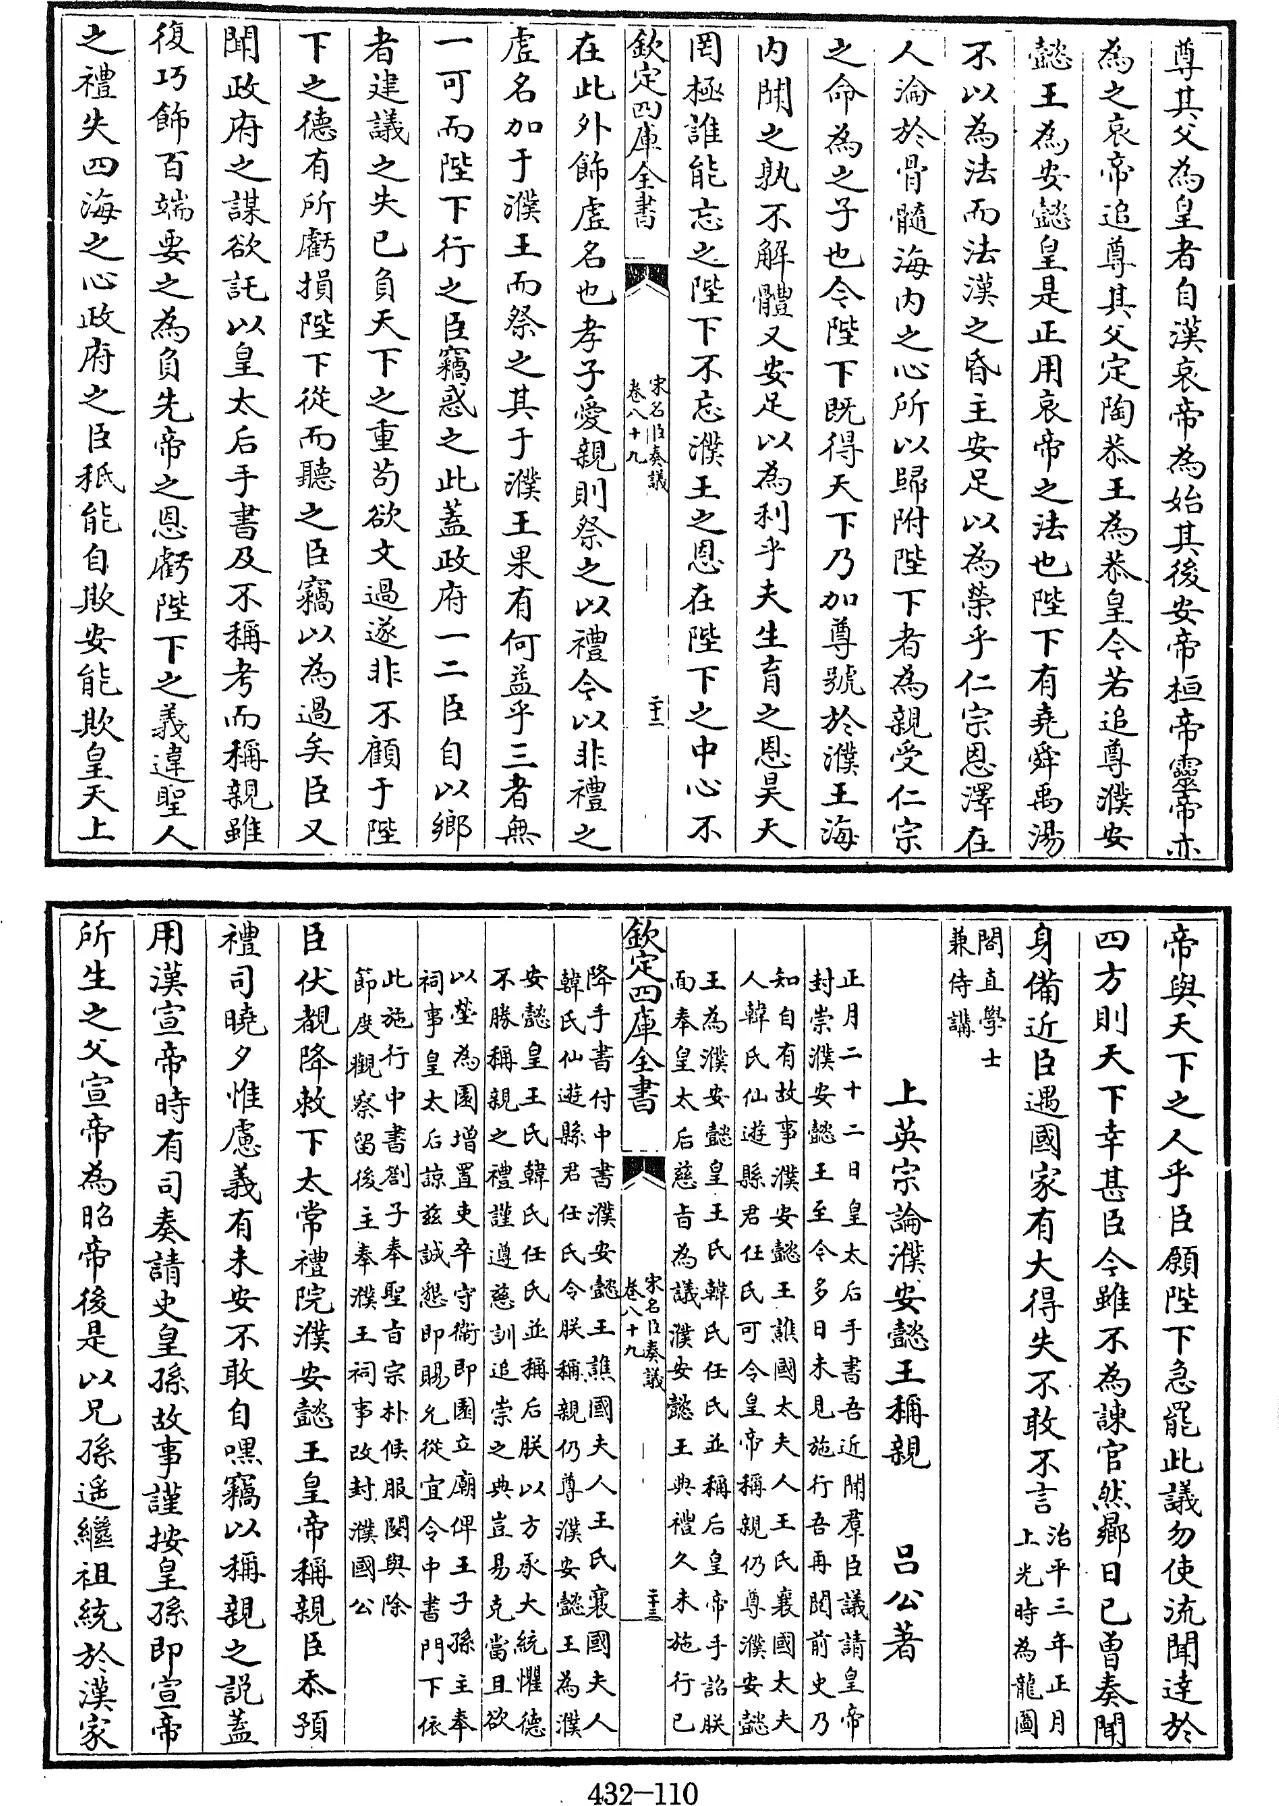 尊其父為皇者自漢哀帝為始其後安帝桓帝靈帝亦
為之哀帝追尊其父定陶恭王為恭皇今若追尊濮安
懿王為安懿皇是正用哀帝之法也陛下有堯舜禹湯
不以為法而法漢之昏主安足以為榮乎仁宗恩澤在
人淪於骨髓海内之心所以歸附陛下者為親受仁宗
之命為之子也今陛下既得天下乃加尊號於濮王海
内聞之孰不解體又安足以為利乎夫生育之恩昊天
罔極誰能忘之陛下不忘濮王之恩在陛下之中心不
欽定四庫全書
宋名臣奏議
卷八十九
二十二
在此外飾虛名也孝子愛親則祭之以禮今以非禮之
虛名加于濮王而祭之其于濮王果有何益乎三者無
一可而陛下行之臣竊惑之此蓋政府一二臣自以鄉
者建議之失已負天下之重苟欲文過遂非不顧于陛
下之德有所虧損陛下從而聽之臣竊以為過矣臣又
聞政府之謀欲託以皇太后手書及不稱考而稱親雖
復巧飾百端要之為負先帝之恩虧陛下之義違聖人
之禮失四海之心政府之臣秖能自欺安能欺皇天上
帝與天下之人乎臣願陛下急罷此議勿使流聞達於
四方則天下幸甚臣今雖不為諫官然鄉日已曾奏聞
身備近臣遇國家有大得失不敢不言
治平三年正月
上光時為龍圖
閣直學士
兼侍講
上英宗論濮安懿王稱親　呂公著
正月二十二日皇太后手書吾近聞羣臣議請皇帝
封崇濮安懿王至今多日未見施行吾再閱前史乃
知自有故事濮安懿王譙國太夫人王氏襄國太夫
人韓氏仙遊縣君任氏可令皇帝稱親仍尊濮安懿
王為濮安懿皇王氏韓氏任氏並稱后皇帝手詔朕
面奉皇太后慈旨為議濮安懿王典禮久未施行已
欽定四庫全書
宋名臣奏議
卷八十九
二十三
降手書付中書濮安懿王譙國夫人王氏襄國夫人
韓氏仙遊縣君任氏令朕稱親仍尊濮安懿王為濮
安懿皇王氏韓氏任氏並稱后朕以方承大統懼德
不勝稱親之禮謹遵慈訓追崇之典豈易克當且欲
以塋為園增置吏卒守衞即園立廟俾王子孫主奉
祠事皇太后諒茲誠懇即賜允從宜令中書門下依
此施行中書劄子奉聖旨宗朴候服闋與除
節度觀察留後主奉濮王祠事改封濮國公
臣伏覩降敕下太常禮院濮安懿王皇帝稱親臣忝預
禮司曉夕惟慮義有未安不敢自嘿竊以稱親之説蓋
用漢宣帝時有司奏請史皇孫故事謹按皇孫即宣帝
所生之父宣帝為昭帝後是以兄孫遥繼祖統於漢家
432-110